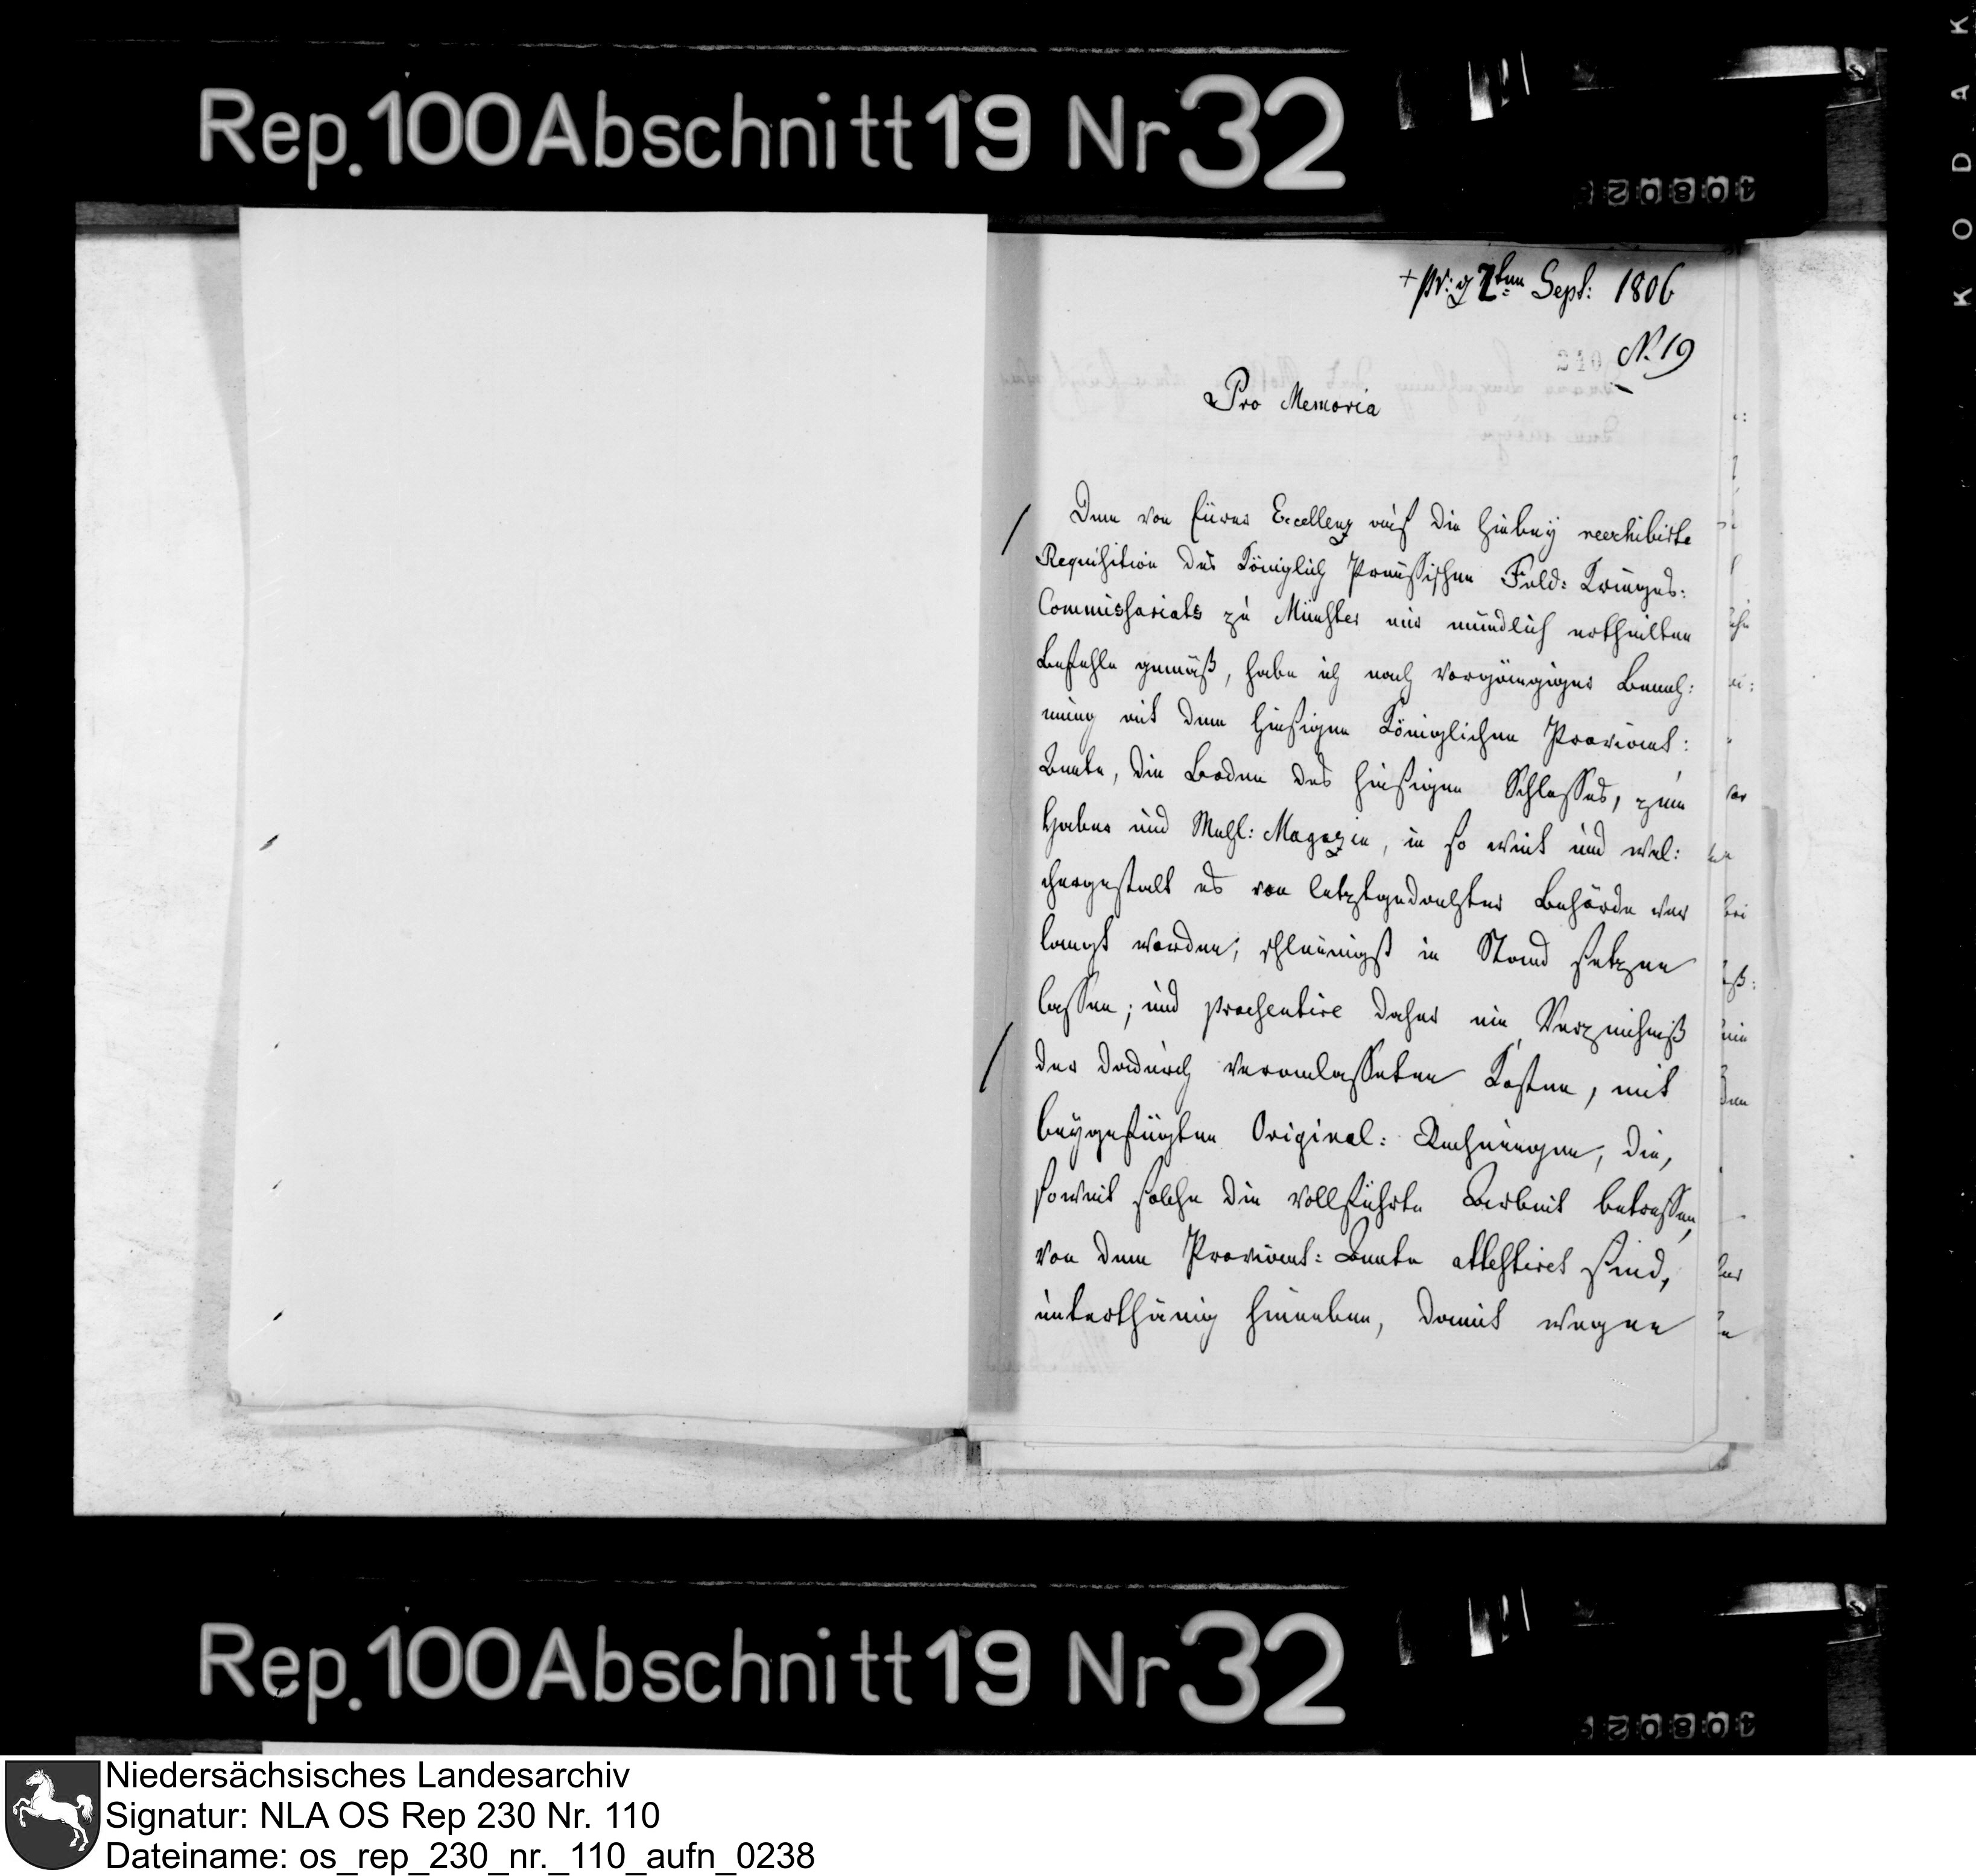 Rep. 100 Abschnitt 19 Nr 32
KODAK
pr: d 7ten Sept: 1806
N. 19
210
Pro Memoria
Dem von Eurer Excellenz auf die hiebey reexhibirte
Requisition des Königlich Preußischen Feld: Krieges:
Commissariats zu Münster mir mündlich ertheilten
Befehle gemäß, habe ich nach vorgängiger Beneh:
mung mit dem hiesigen Königlichen Proviant:
Amte, die Boden des hiesigen Schlosses, zum
Haber und Mehl: Magazin, in so weit und wel:
chergestalt es von letztgedachter Behörde ver
langt worden, schleunigst in Stand setzen
lassen; und praesentire daher ein Verzeichniß
der dadurch veranlasseten Kosten, mit
beygefügten Original: Rechnungen, die,
soweit solche die vollführte Arbeit betreffen,
von dem Proviant: Amte attestiret sind,
unterthänig hieneben, damit wegen
Rep. 100 Abschnitt 19 Nr 32
Niedersächsisches Landesarchiv
Signatur: NLA OS Rep 230 Nr. 110
Dateiname: os_rep_230_nr._110_aufn_0238